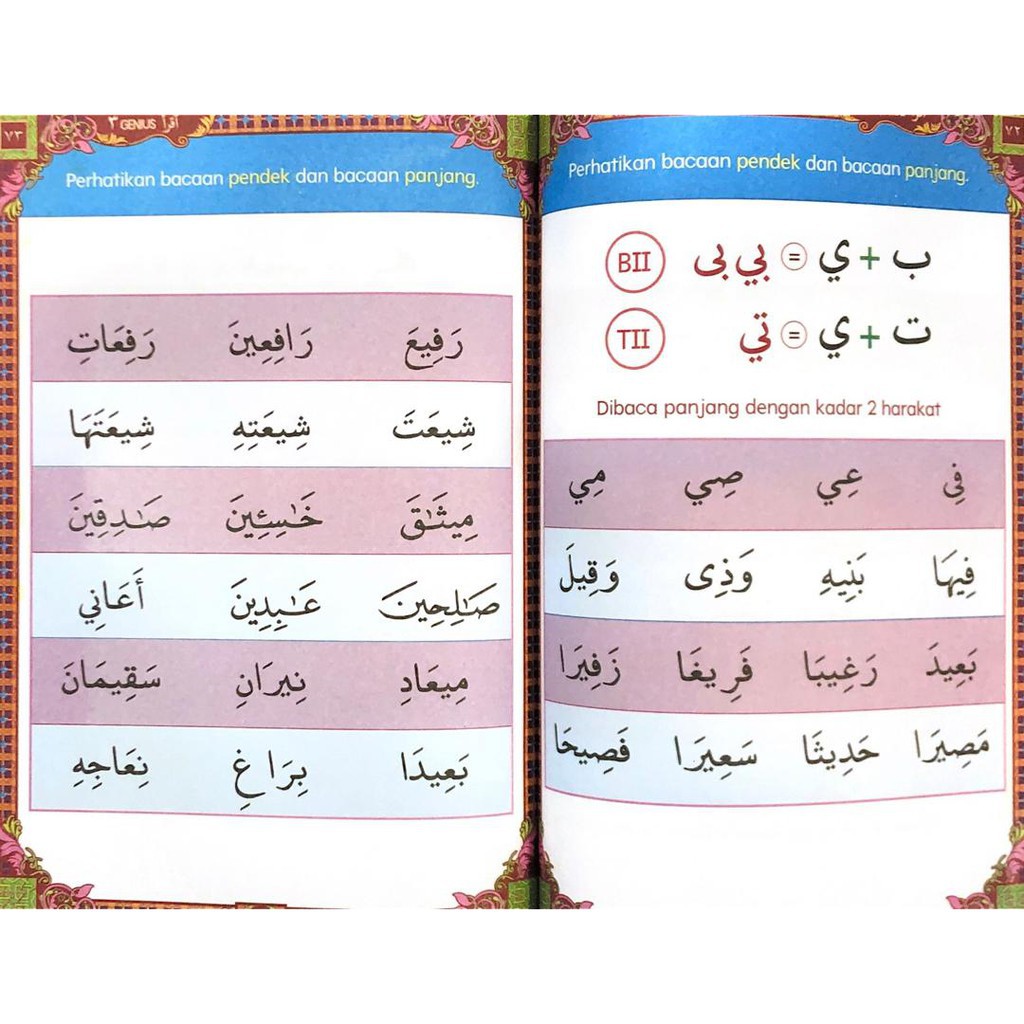 ٧٢
Perhatikan bacaan pendek dan bacaan panjang.
ب + ي = بي بى BII
ت + ي = تي TII
Dibaca panjang dengan kadar 2 harakat
فِى عِي صِي مِي
فِيهَا بَنِيهِ وَذِى وَقِيلَ
بَعِيدَ رَغِيبَا فَرِيغَا زَفِيرَا
مَصِيرَا حَدِيثَا سَعِيرَا فَصِيحَا
٧٣
٣ GENIUS اقرأ
Perhatikan bacaan pendek dan bacaan panjang.
رَفِيعَ رَافِعِينَ رَفِعَاتِ
شِيعَتَ شِيعَتِهِ شِيعَتَهَا
مِيثَٰقَ خَٰسِئِينَ صَٰدِقِينَ
صَٰلِحِينَ عَٰبِدِينَ أَعَانِي
مِيعَادِ نِيرَانِ سَقِيمَانَ
بَعِيدَا بِرَاغِ نِعَاجِهِ